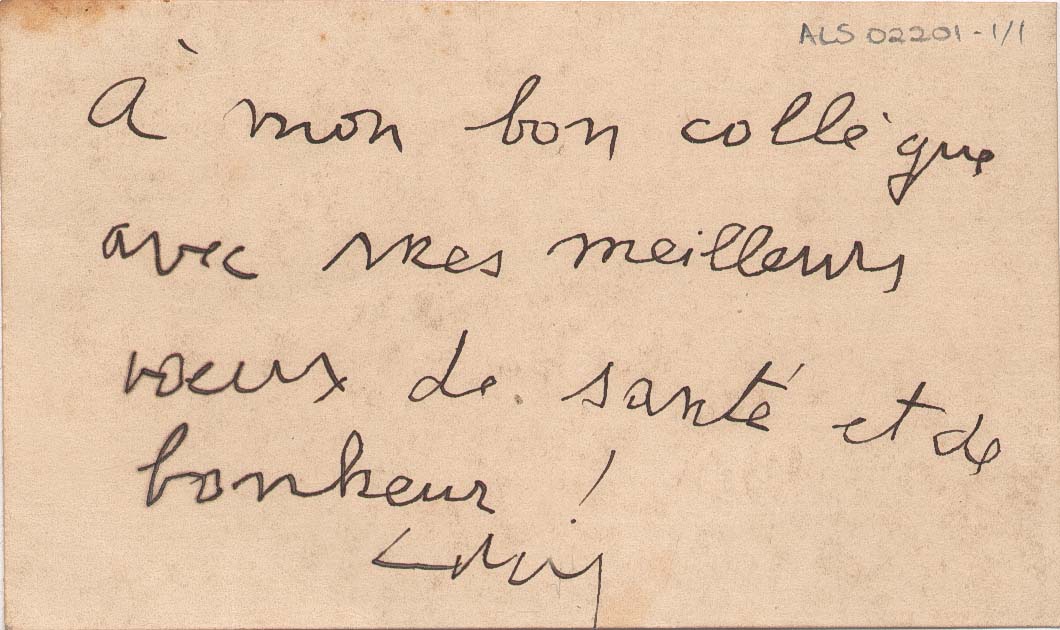 ALS 02201-1/1
À mon bon collègue
avec mes meilleurs
voeux de santé et de
bonheur !
Louis